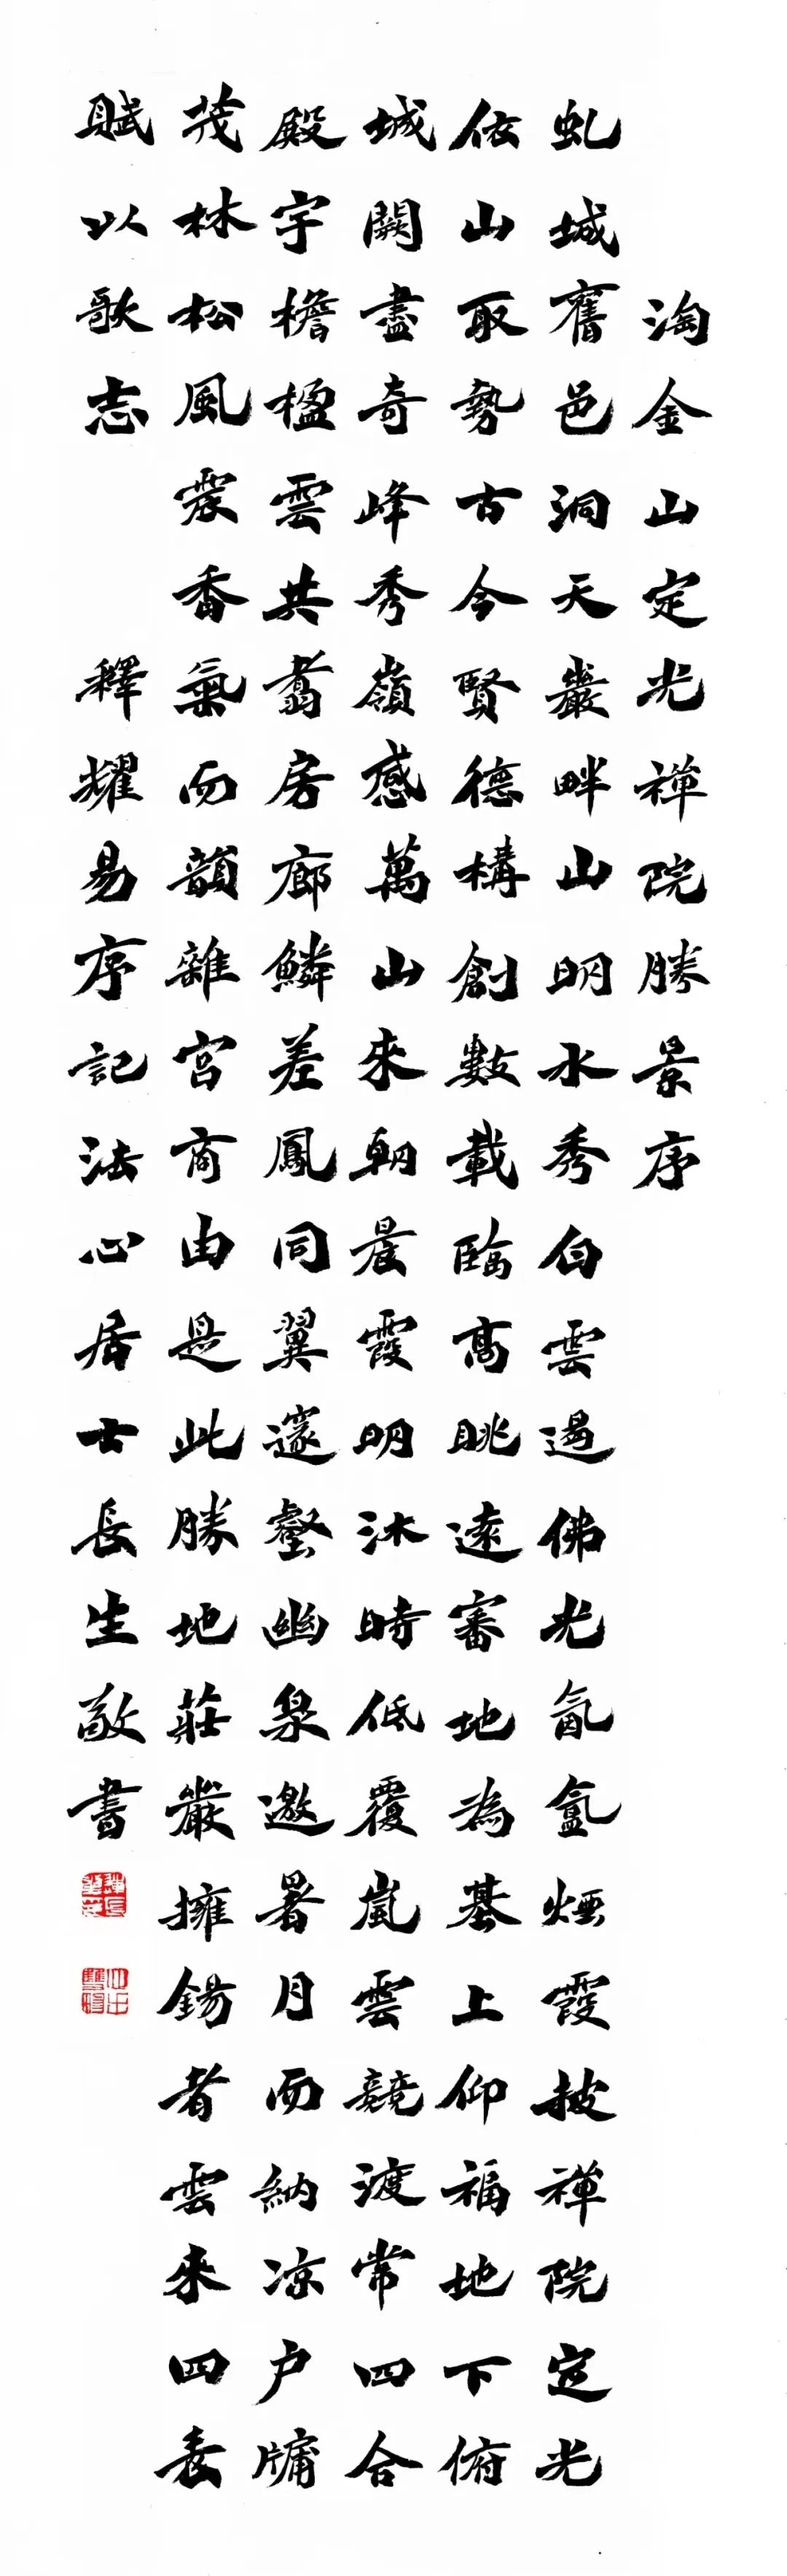 淘金山定光禪院勝景序
虬城舊邑洞天巖畔山明水秀白雲遏佛光氤氳煙霞披禪院定光
依山取勢古今賢德構創數載臨高眺遠審地為基上仰福地下俯
城闕盡奇峰秀嶺感萬山來朝晨霞明沐時低覆嵐雲競渡常四合
殿宇檐楹雲共翥房廊鱗差鳳同翼邃壑幽泉邀暑月而納凉户牖
茂林松風震香氣而韻雜宮商由是此勝地莊嚴擁錫者雲來四表
賦以歌志 釋耀易序記法心居士長生敬書